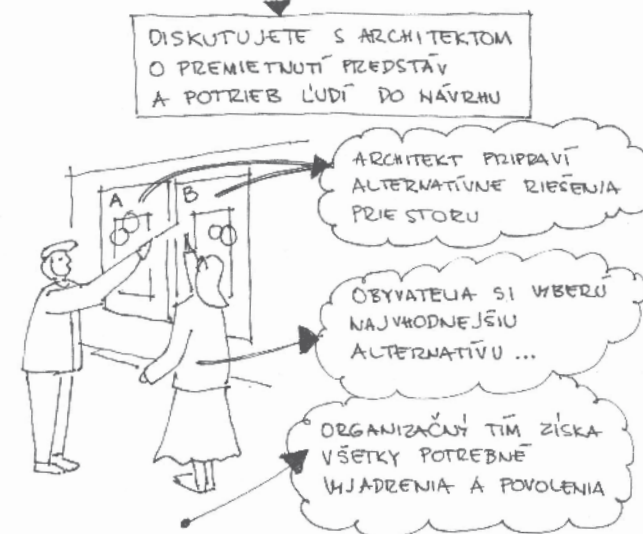 DISKUTUJETE S ARCHITEKTOM
O PREMIETNUTÍ PREDSTÁV
A POTRIEB ĽUDÍ DO NÁVRHU
A B
ARCHITEKT PRIPRAVÍ
ALTERNATÍVNE RIEŠENIA
PRIESTORU
OBYVATELIA SI VYBERÚ
NAJVHODNEJŠIU
ALTERNATÍVU ...
ORGANIZAČNÝ TÍM ZÍSKA
VŠETKY POTREBNÉ
VYJADRENIA A POVOLENIA